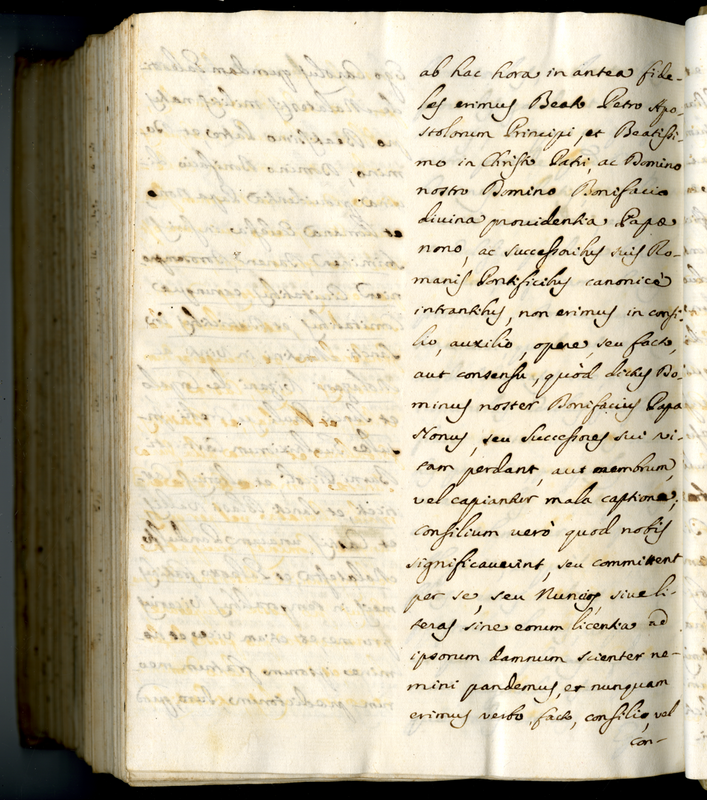 ab hac hora in antea fide-
les erimus Beato Petro Apo-
stolorum Principi, et Beatissi-
mo in Christo Patri, ac Domino
nostro Domino Bonifacio
divina providentia Papæ
nono, ac successoribus suis Ro-
manis Pontificibus canonicè
intrantibus, non erimus in consi-
lio, auxilio, opere, seu facto,
aut consensu, quòd dictus Do-
minus noster Bonifacius Papa
Nonus, seu Successores sui vi-
tam perdant, aut membrum,
vel capiantur mala captione;
Consilium verò quod nobis
significaverint, seu committent
per se, seu Nuncios, sive li-
teras sine eorum licentia ad
ipsorum damnum scienter ne-
mini pandemus, et nunquam
erimus verbo, facto, consilio, vel
con-